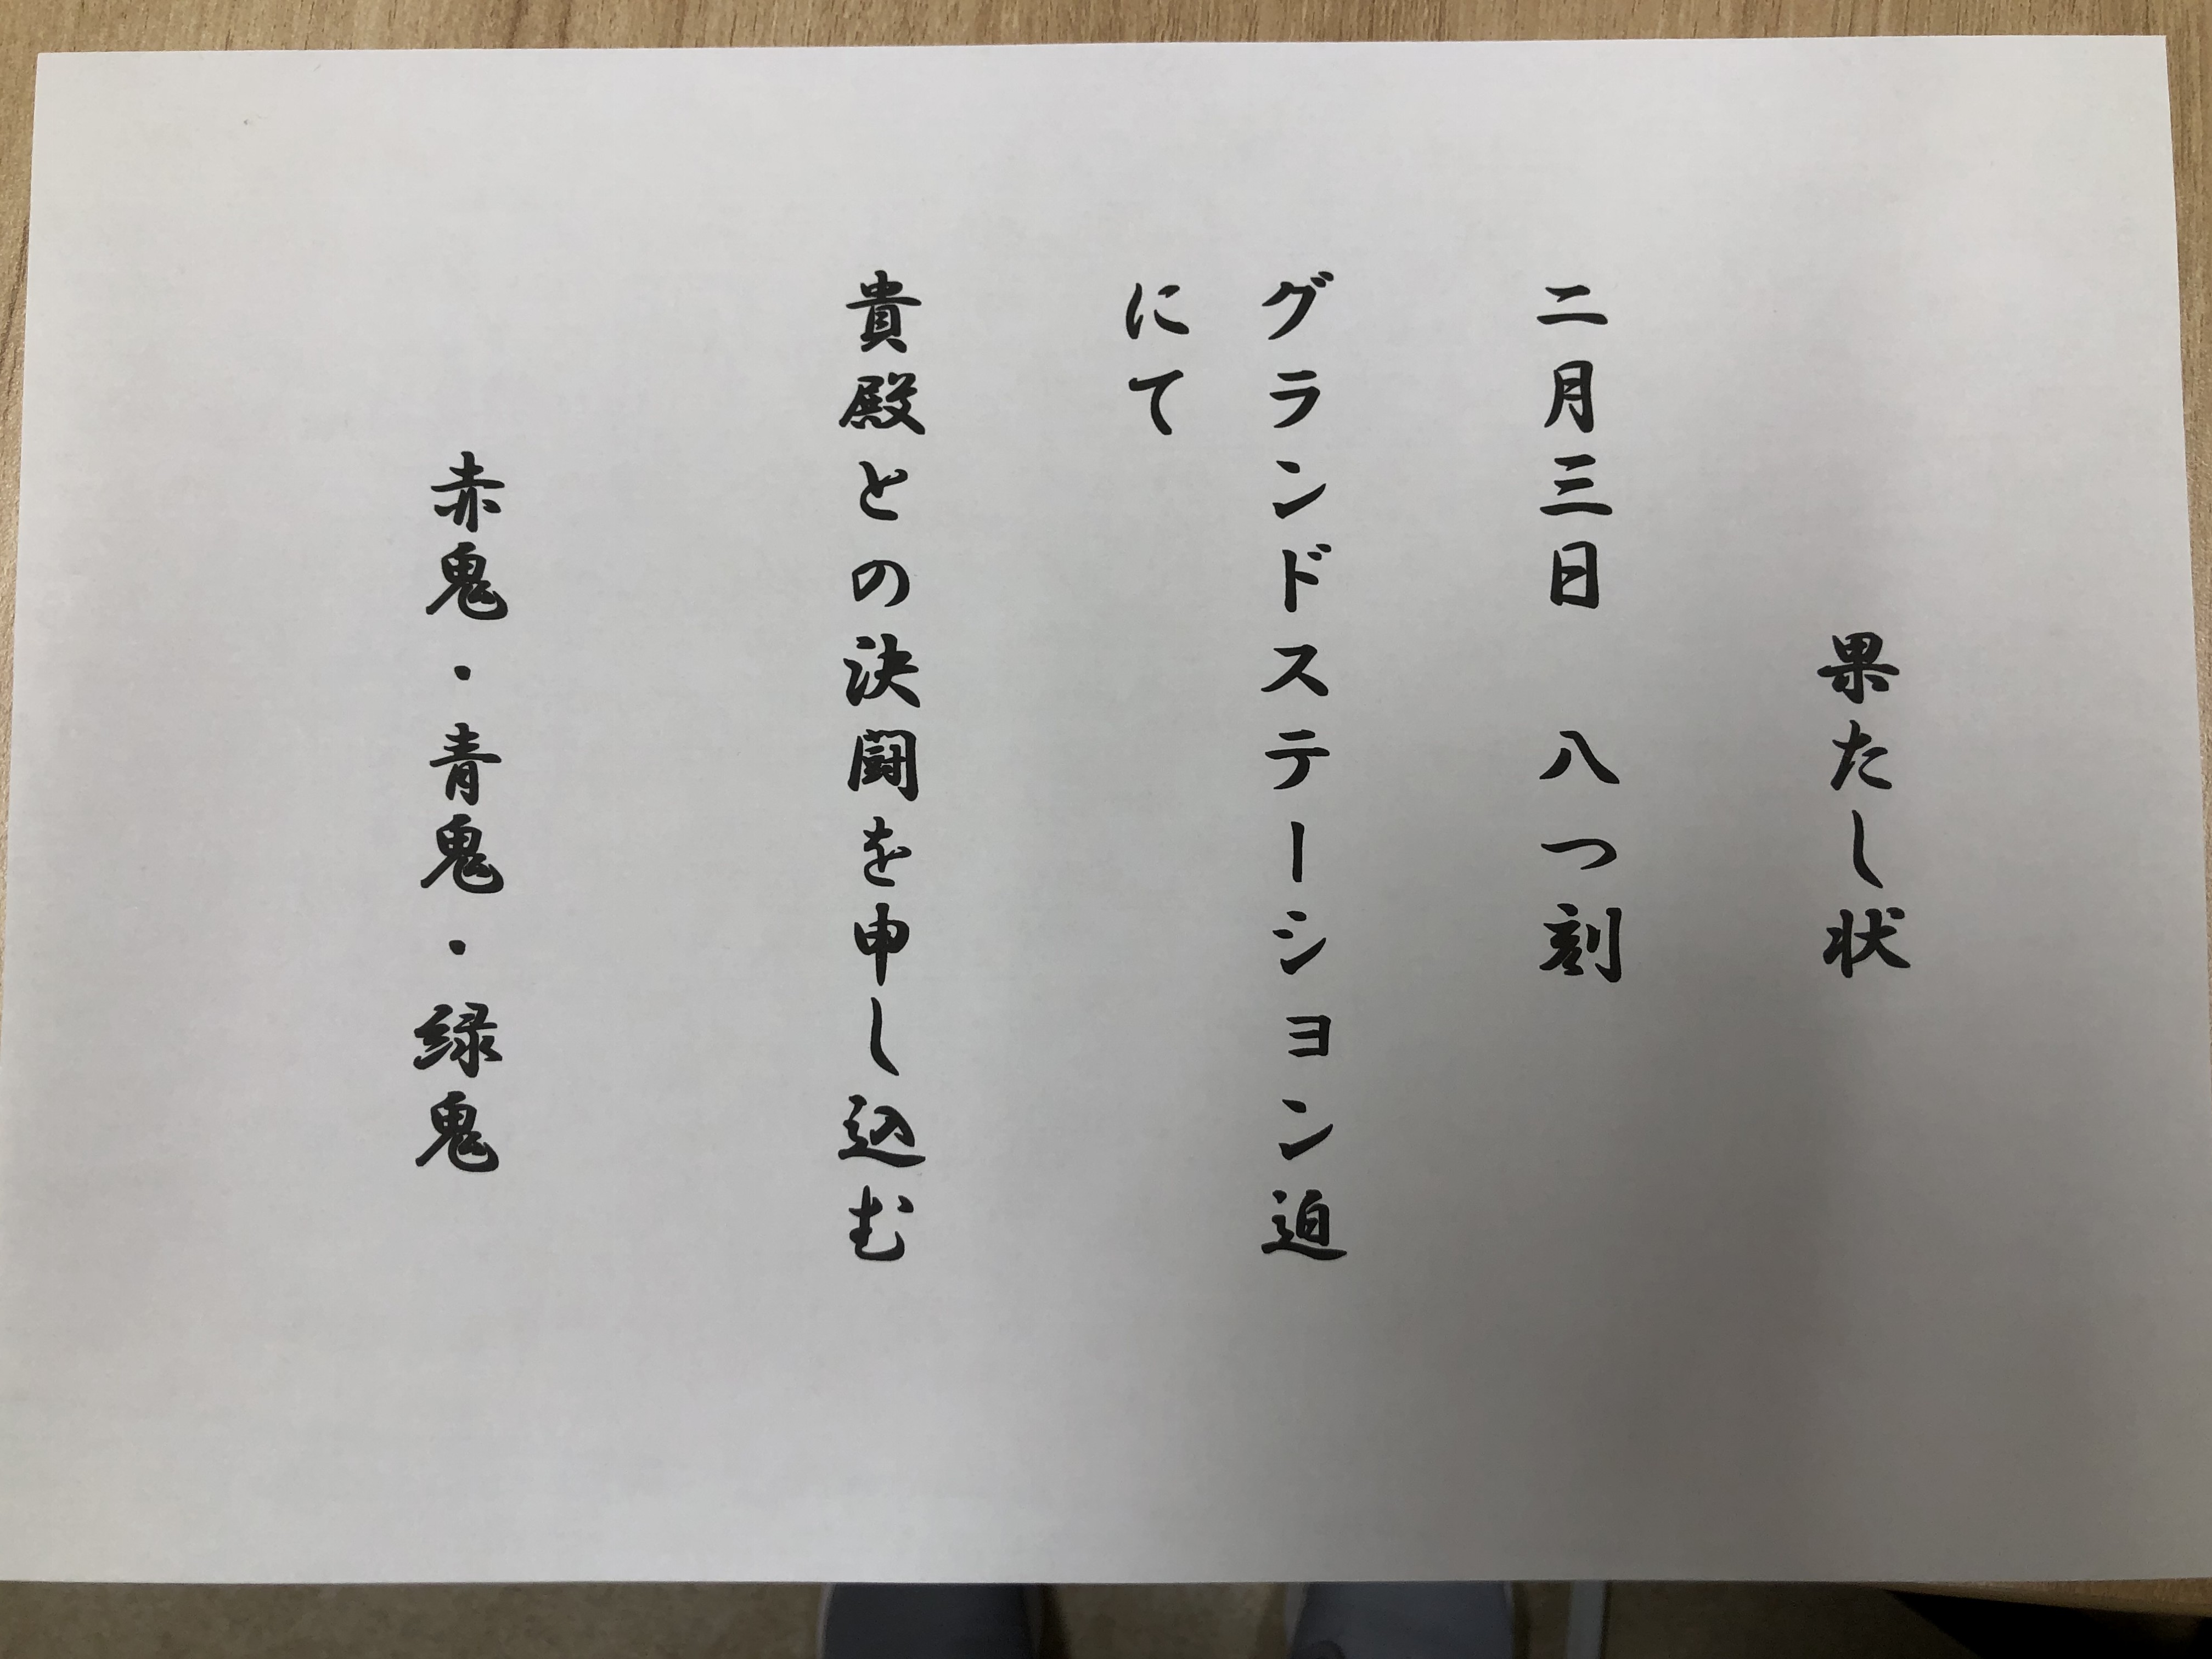 果たし状
二月三日　八つ刻
グランドステーション迫
にて
貴殿との決闘を申し込む
赤鬼・青鬼・緑鬼